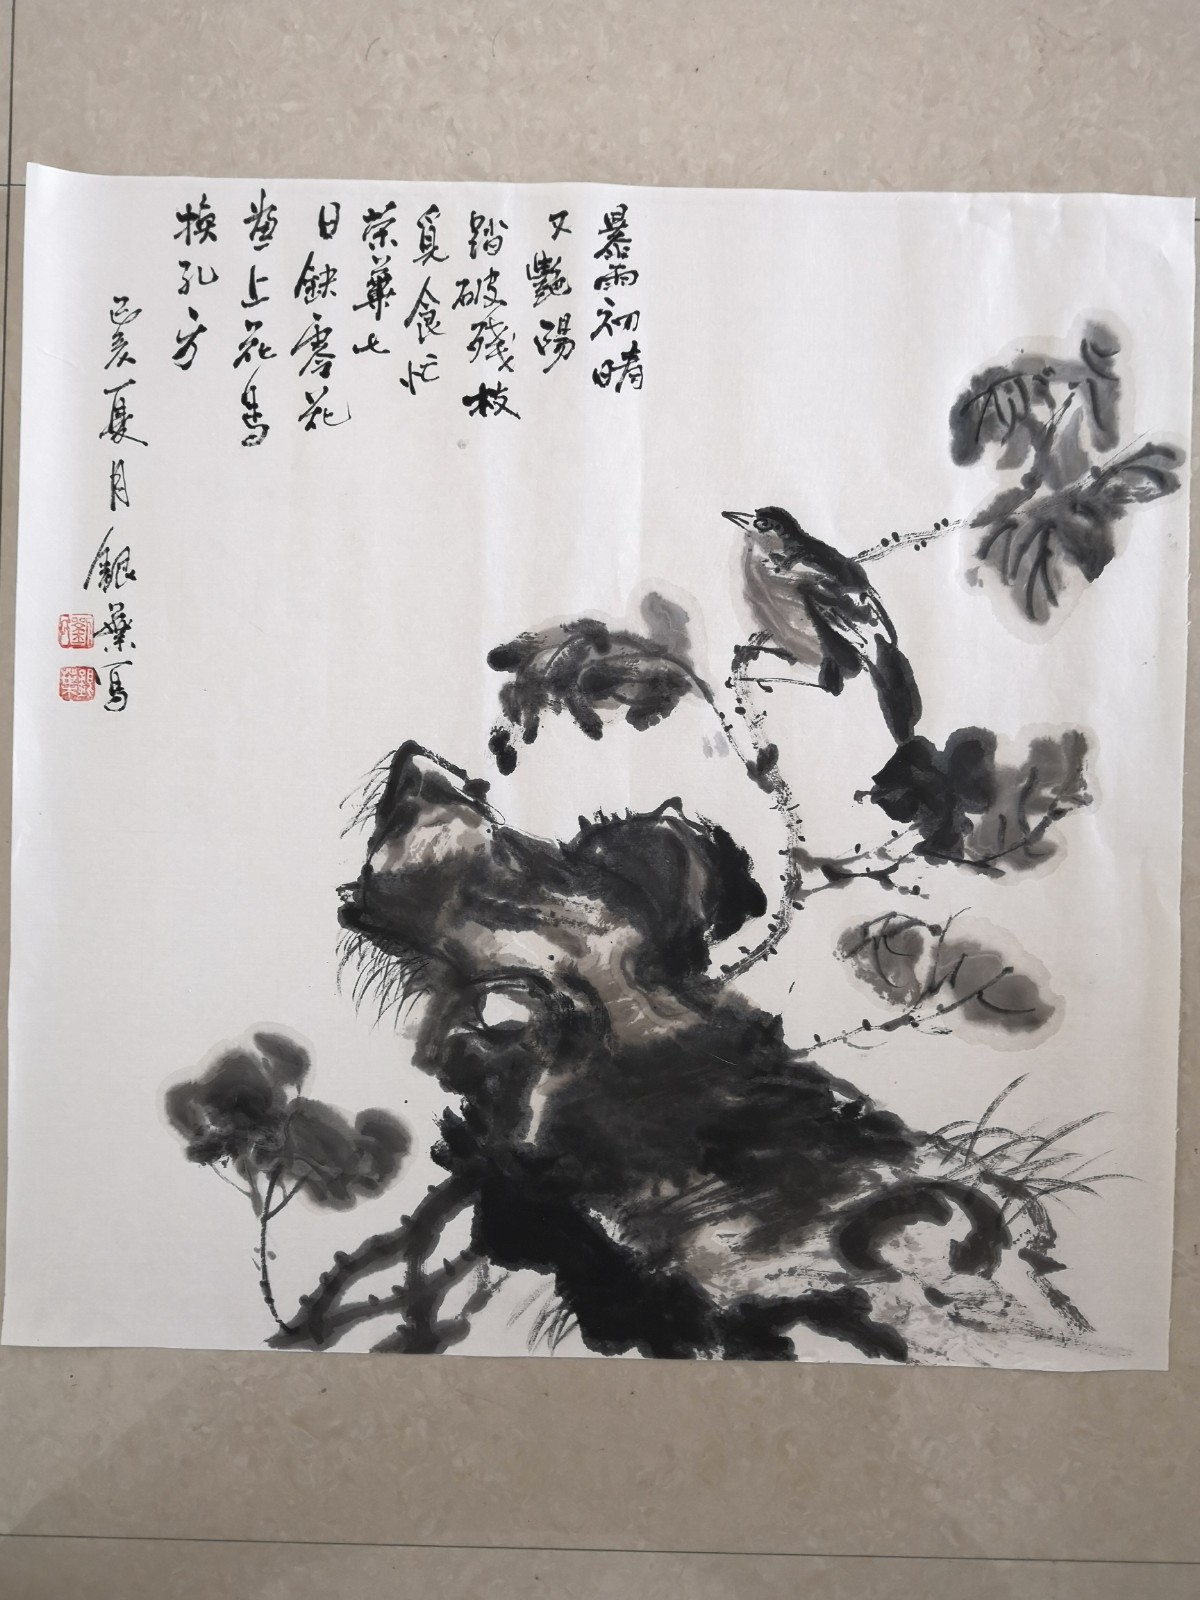 暴雨初晴
又艷陽
踏破殘枝
覓食忙
榮華七
日缺零花
畫上花鳥
換孔方
己亥夏月銀葉寫
銀葉